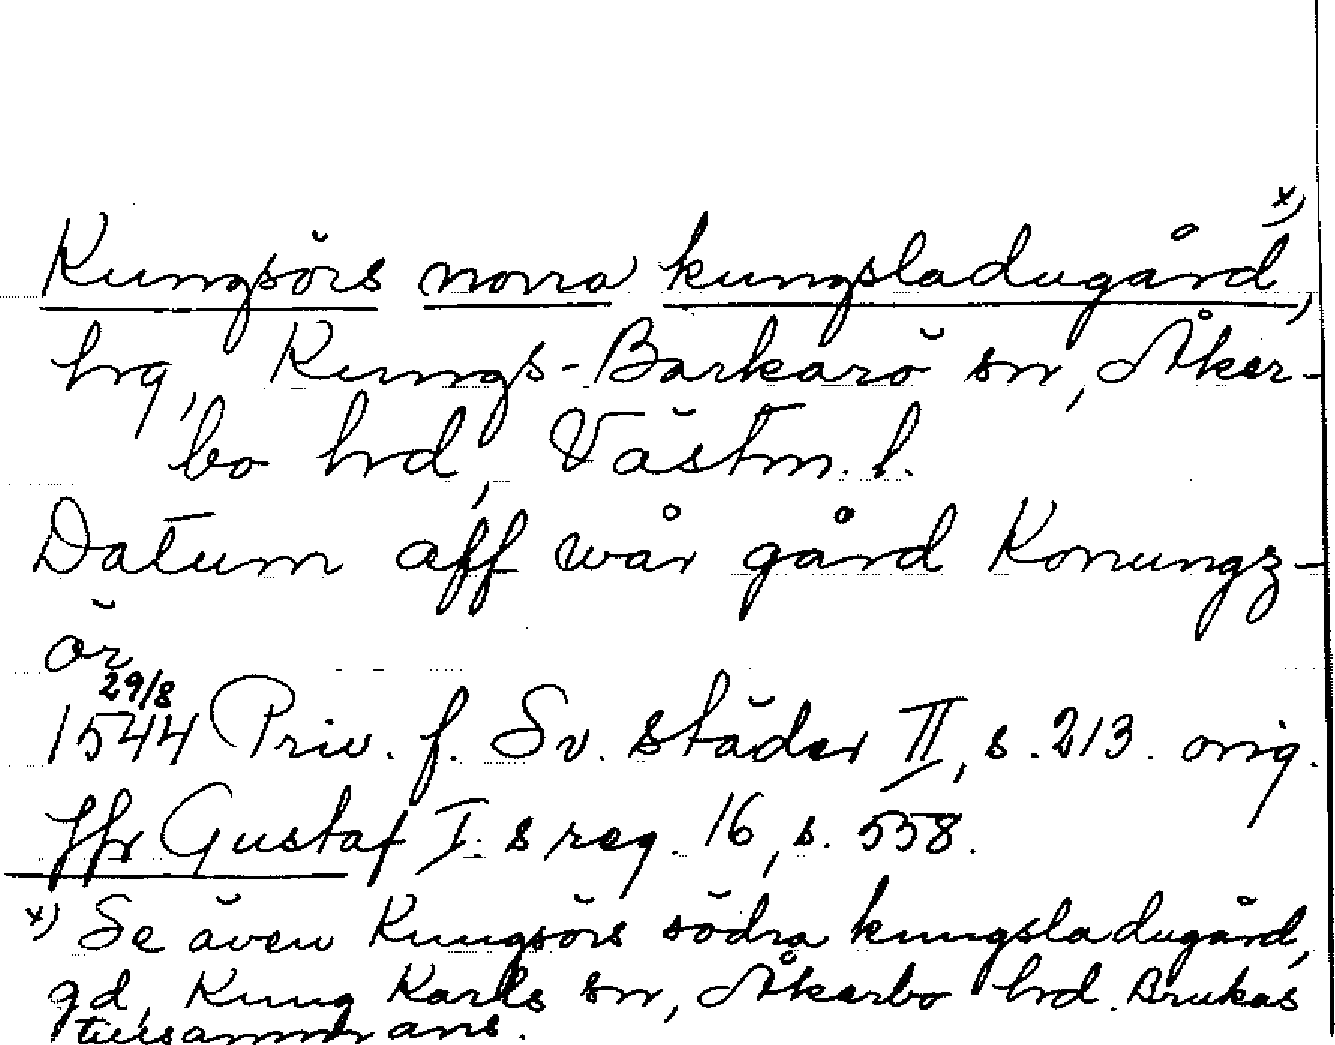 Kungsörs norra kungsladugård, x)
hrg, Kungs-Barkarö sn, Åker-
bo hrd, Västm. l.
Datum aff wår gård Konungz-
ör
1544 29/8 Priv. f. Sv. städer II, s. 213. orig.
Jfr Gustaf I:s reg. 16, s. 558.
x) Se även Kungsörs södra kungsladugård,
gd, Kung Karls sn, Åkerbo hrd. Brukas
tillsammans.